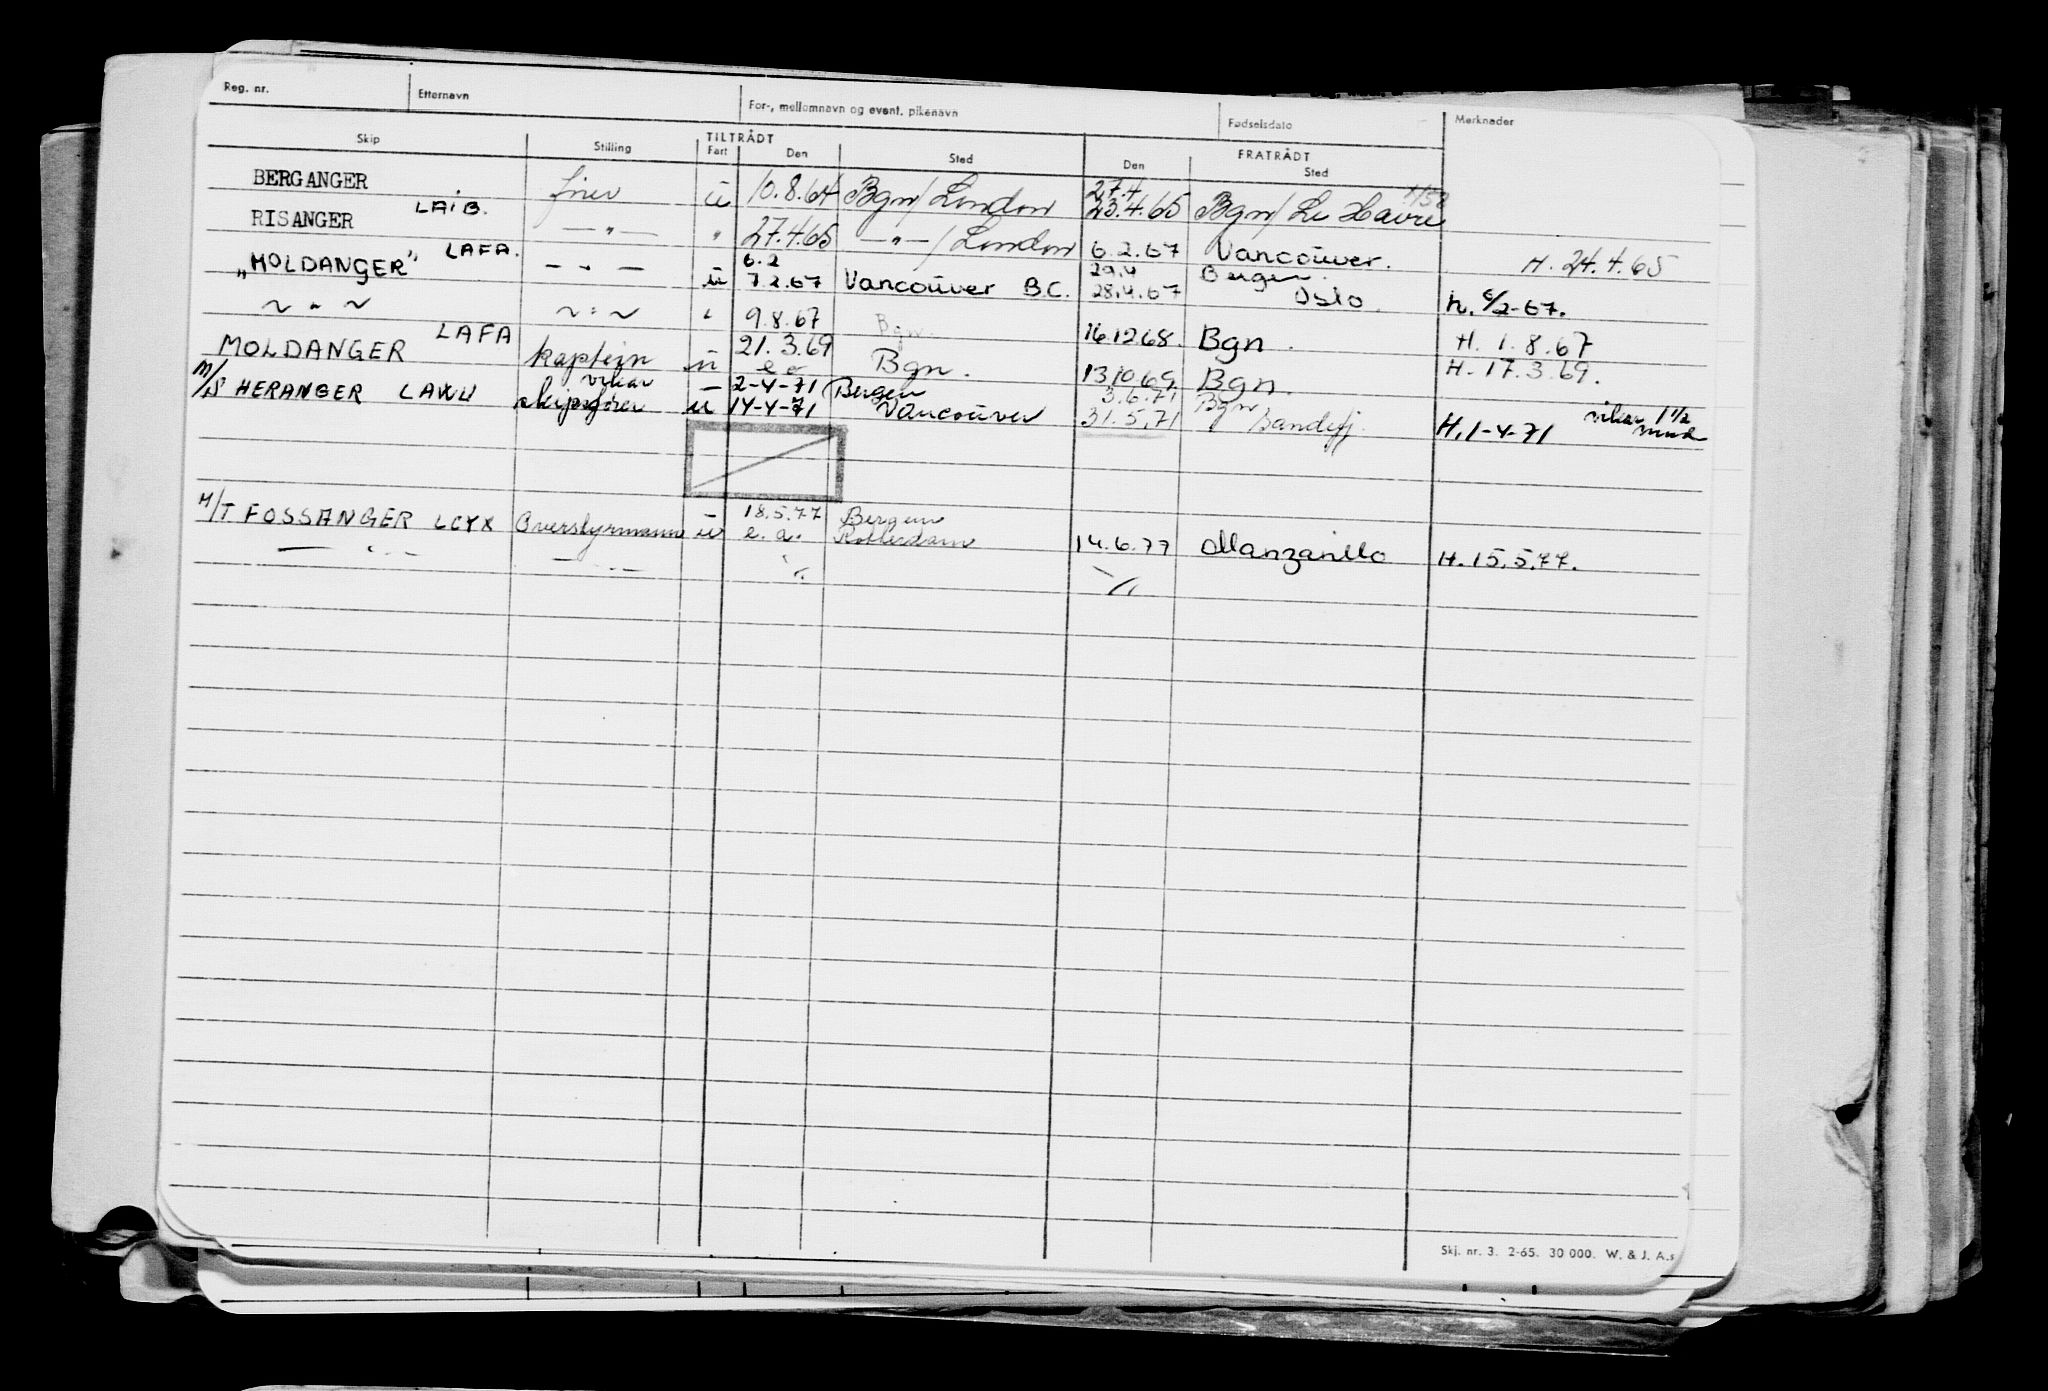 Reg. nr. Etternavn For-, mellomnavn og event. pikenavn Fødselsdato Merknader
TILTRÅDT FRATRÅDT
Skip Stilling Fart Den Sted Den Sted
BERGANGER fører u 10.8.64 Bgn/London 27.4 23.4.65 Bgn/Le Havre
RISANGER LAIB. —„— " 27.4.65 —„—/London 6.2.67 Vancouver. H. 24.4.65
„MOLDANGER" LAFA. —„— u 6.2 7.2.67 Vancouver B.C. 29.4 28.4.67 Bergen. Oslo. h. 6/2-67.
~ " ~ ~ " ~ 9.8.67 Bgn. 16.12 68. Bgn. H. 1.8.67
MOLDANGER LAFA kaptein u 21.3.69 Bgn. 13.10.69. Bgn. H. 17.3.69.
vikar – 2-4-71 Bergen 3.6.71 Bgn
M/S HERANGER skipsfører u 14-4-71 Vancouver 31.5.71 Sandefj. H. 1-4-71 vikar 1 1/2 mnd
– 18.5.77 Bergen
M/T FOSSANGER LCYX Overstyrmann u e.a. Rotterdam 14.6.77 Manzanillo H. 15.5.77.
— " — — " — "
Skj. nr. 3. 2-65. 30 000. W. & J. A.s